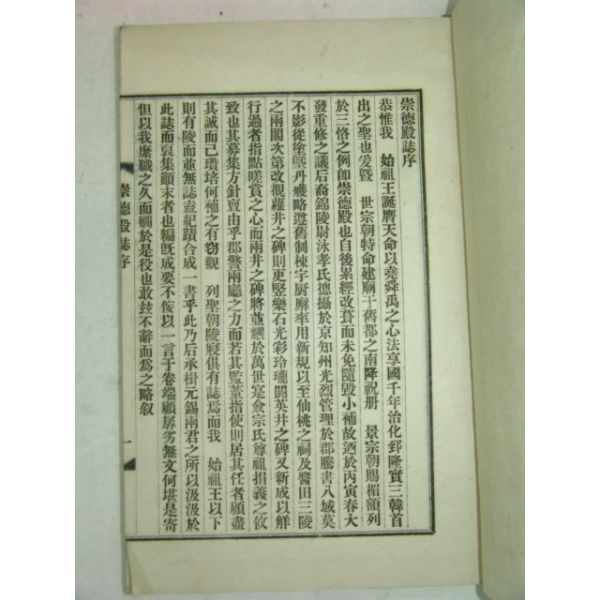 崇德殿誌序
恭惟我 始祖王誕膺天命以堯舜禹之心法享國千年治化郅隆實三韓首
出之聖也爰曁 世宗朝特命建廟于舊都之南降祝册 景宗朝賜楣額列
於三恪之例卽崇德殿也自後累經改葺而未免隨毁小補故廼於丙寅春大
發重修之議后裔錦陵尉泳孝氏摠攝於京知州光烈管理於郡騰書八域莫
不影從塗墍丹雘略遵舊制棟宇厨廨率用新規以至仙桃之祠及醬田三陵
之兩閣次第改觀蘿井之碑則更竪樂石光彩玲瓏閼英井之碑又新成以鮮
行過者指點嗟賞之心而兩井之碑將並耀於萬世寔僉宗氏尊祖捐義之攸
致也其募集方針亶由乎郡警兩廳之力而若其監董指使則居其任者顧盡
其誠而已瓚培何補之有窃觀 列聖朝陵寢俱有誌焉而我 始祖王以下
則有陵而並無誌盍紀蹟合成一書乎此乃后承楫元錫兩君之所以汲汲於
此誌而裒集顚末者也編旣成要不侫以一言于卷端顧孱劣無文何堪是寄
但以我縻職之久而觸於是役也敢玆不辭而爲之略叙
崇德殿誌序
一